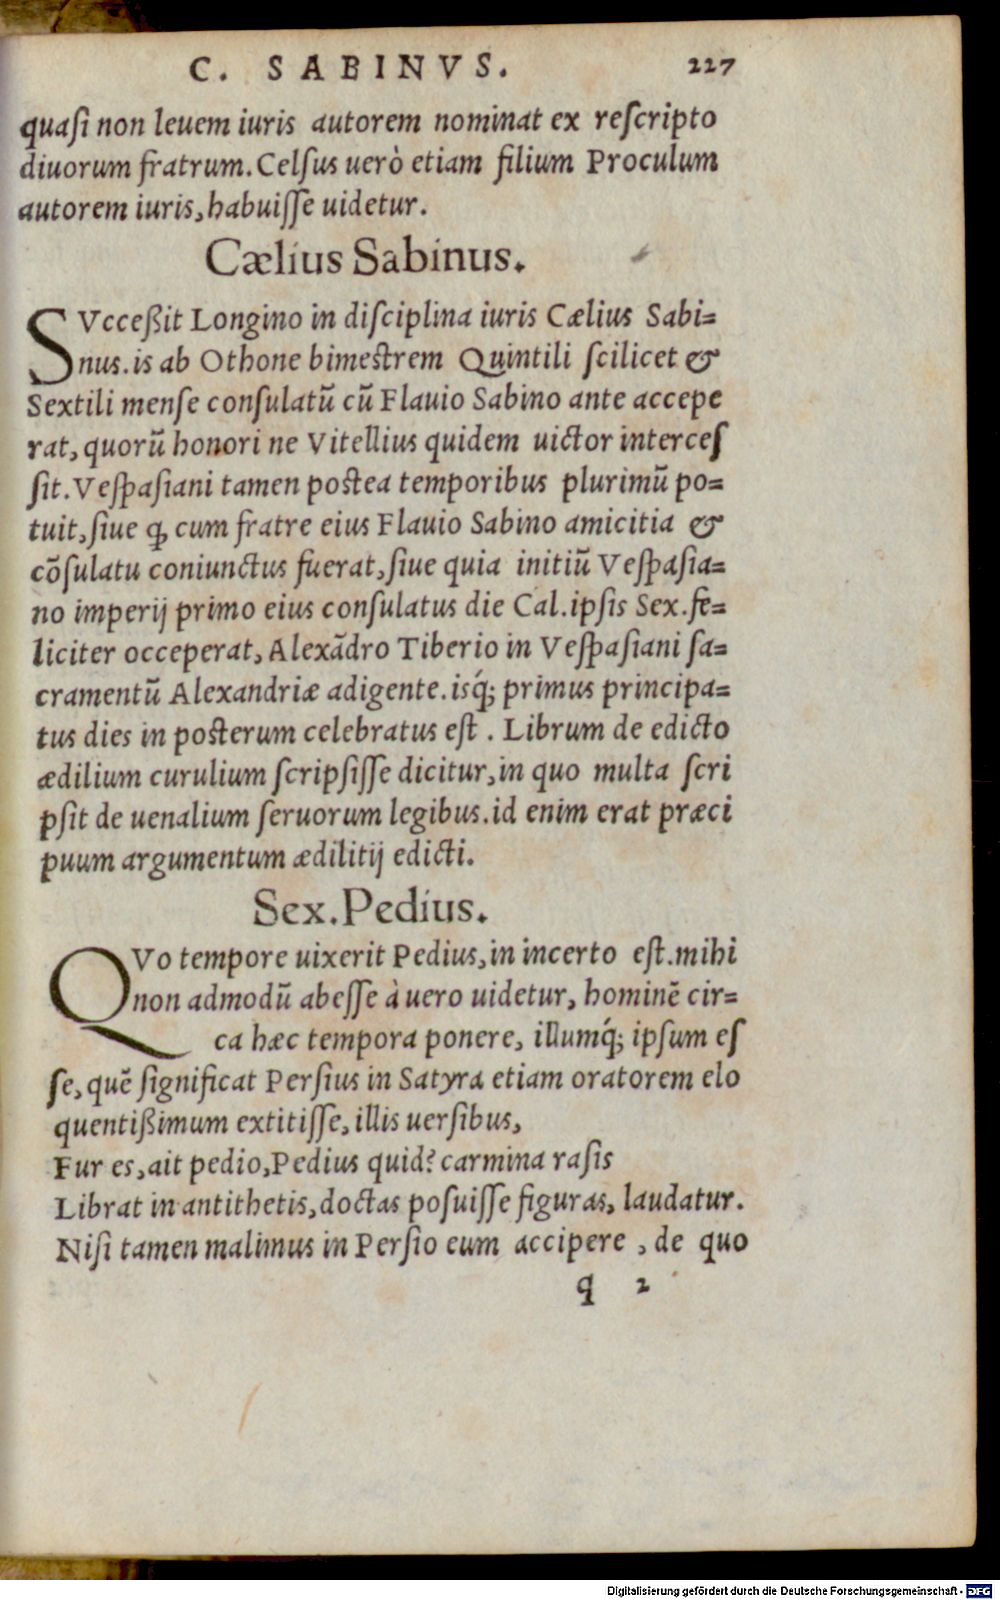 C. SABINVS. 227
quaſi non leuem iuris autorem nominat ex reſcripto
diuorum fratrum. Celſus uerò etiam filium Proculum
autorem iuris, habuiſſe uidetur.
Cælius Sabinus.
SVcceßit Longino in diſciplina iuris Cælius Sabi=
nus. is ab Othone bimeſtrem Quintili ſcilicet &
Sextili menſe conſulatũ cũ Flauio Sabino ante accepe
rat, quorũ honori ne Vitellius quidem uictor interceſ
ſit. Veſpaſiani tamen poſtea temporibus plurimũ po=
tuit, ſiue ꝙ cum fratre eius Flauio Sabino amicitia &
cõſulatu coniunctus fuerat, ſiue quia initiũ Veſpaſia=
no imperij primo eius conſulatus die Cal. ipſis Sex. fe=
liciter occeperat, Alexãdro Tiberio in Veſpaſiani ſa=
cramentũ Alexandriæ adigente. isq́; primus principa=
tus dies in poſterum celebratus eſt. Librum de edicto
ædilium curulium ſcripſiſſe dicitur, in quo multa ſcri
pſit de uenalium ſeruorum legibus. id enim erat præci
puum argumentum ædilitij edicti.
Sex. Pedius.
QVo tempore uixerit Pedius, in incerto eſt. mihi
non admodũ abeſſe à uero uidetur, hominẽ cir=
ca hæc tempora ponere, illumq́; ipſum eſ
ſe, quẽ ſignificat Perſius in Satyra etiam oratorem elo
quentißimum extitiſſe, illis uerſibus,
Fur es, ait pedio, Pedius quid? carmina raſis
Librat in antithetis, doctas poſuiſſe figuras, laudatur.
Niſi tamen malimus in Perſio eum accipere, de quo
q 2
Digitalisierung gefördert durch die Deutsche Forschungsgemeinschaft - DFG